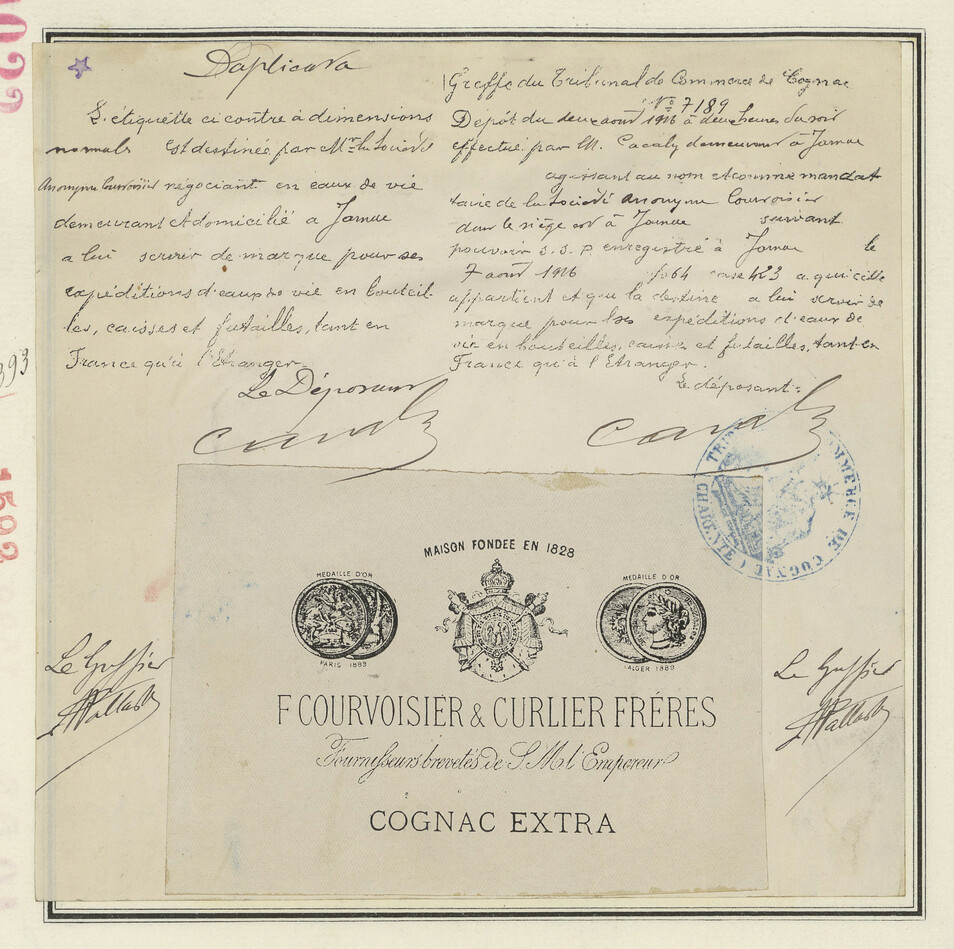 Duplicata
L'étiquette ci contre à dimensions
normales Est destinée par Mr la Société
Anonyme Courvoisier négociant en eaux de vie
demeurant et domicilié a Jarnac
a lui servir de marque pour ses
expéditions d'eaux de vie en bouteil-
les, caisses et futailles, tant en
France qu'à l'Etranger.
Le Déposant
Greffe du Tribunal de Commerce de Cognac
No 7189
Dépôt du deux aout 1916 à deux heures du soir
effectué par M. Cavaly demeurant à Jarnac
agissant au nom et comme mandat
taire de la Société Anonyme Courvoisier
dont le siège est à Jarnac suivant
pouvoir s. s. p. enregistré à Jarnac le
7 aout 1916 fo 64 case 423 a qui elle
appartient et qui la destine a lui servir de
marque pour les expéditions d'eaux de
vie en bouteilles, caisses et futailles, tant en
France qu'à l'Etranger.
Le déposant
COMMERCE DE COGNAC
(CHARENTE)
MAISON FONDEE EN 1828
MEDAILLE D'OR
MEDAILLE D'OR
PARIS 1889
ALGER 1889
F COURVOISIER & CURLIER FRÉRES
Fournisseurs brevetés de S. M. l'Empereur
COGNAC EXTRA
Le Greffier
Le Greffier
1592